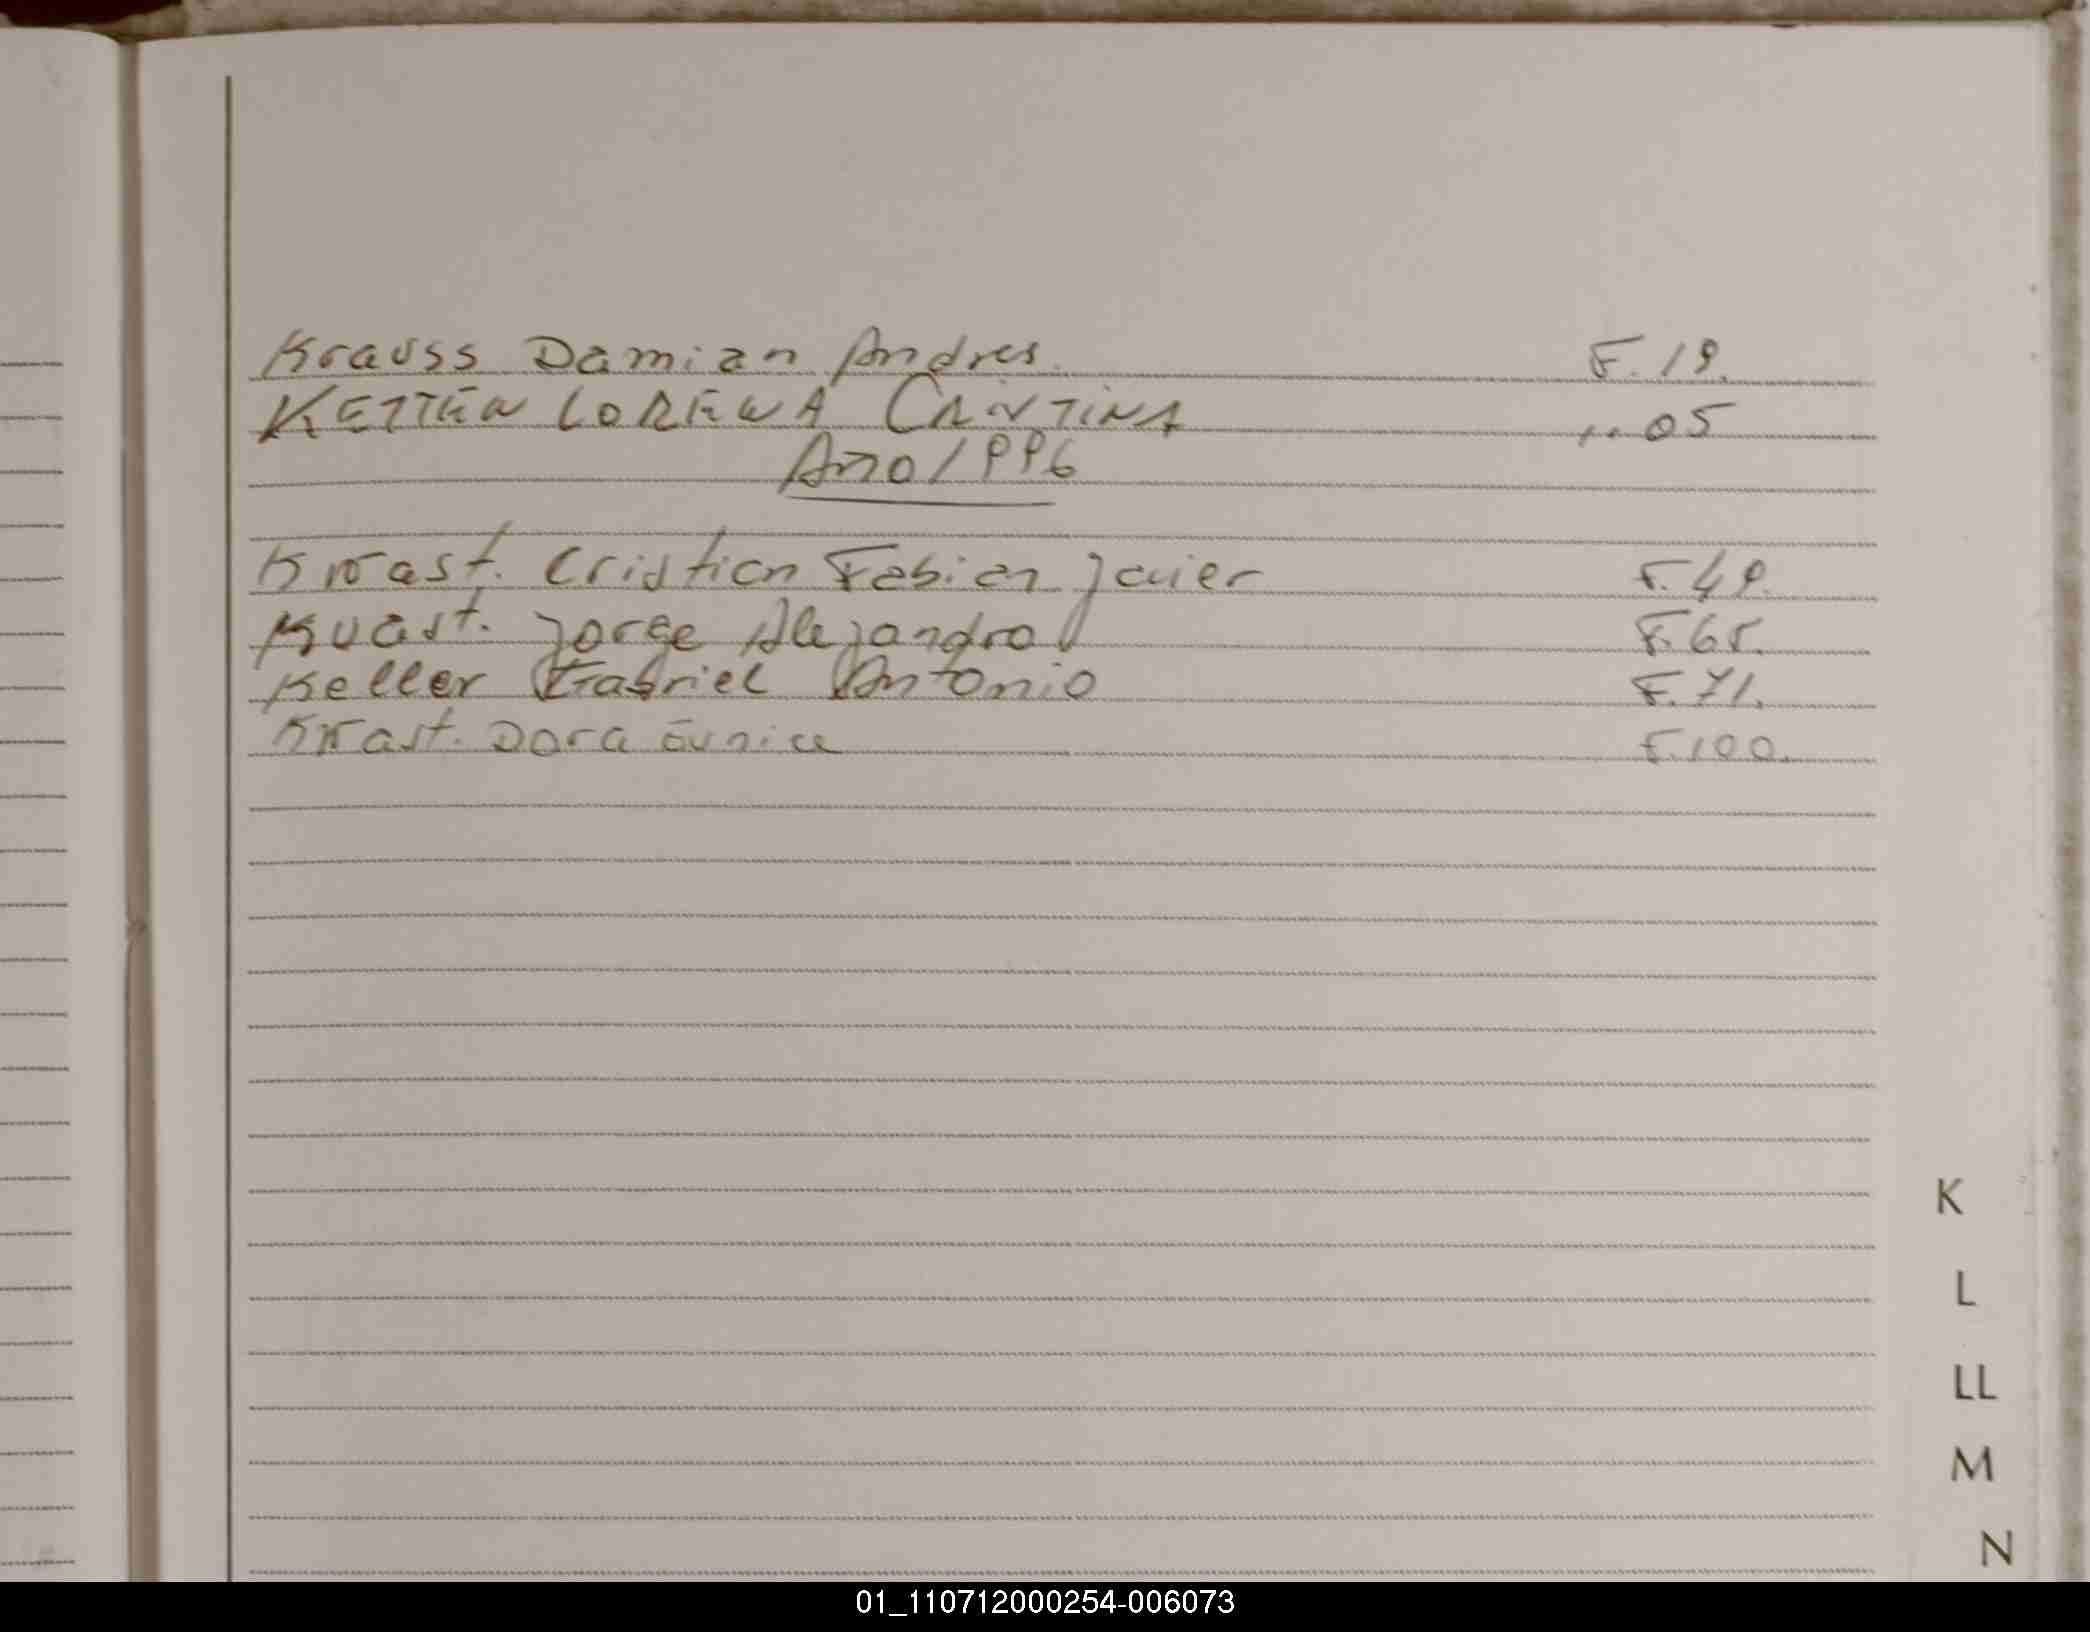 Krauss Damian Andres. F. 19.
KETTEN LORENA CRISTINA " 05
Año 1996
Kwast. Cristian Fabian Javier F. 49.
Kuast. Jorge Alejandro F. 65.
Keller Gabriel Antonio F. 71.
Kwast. Dora Eunice F. 100.
K
L
LL
M
N
01_110712000254-006073